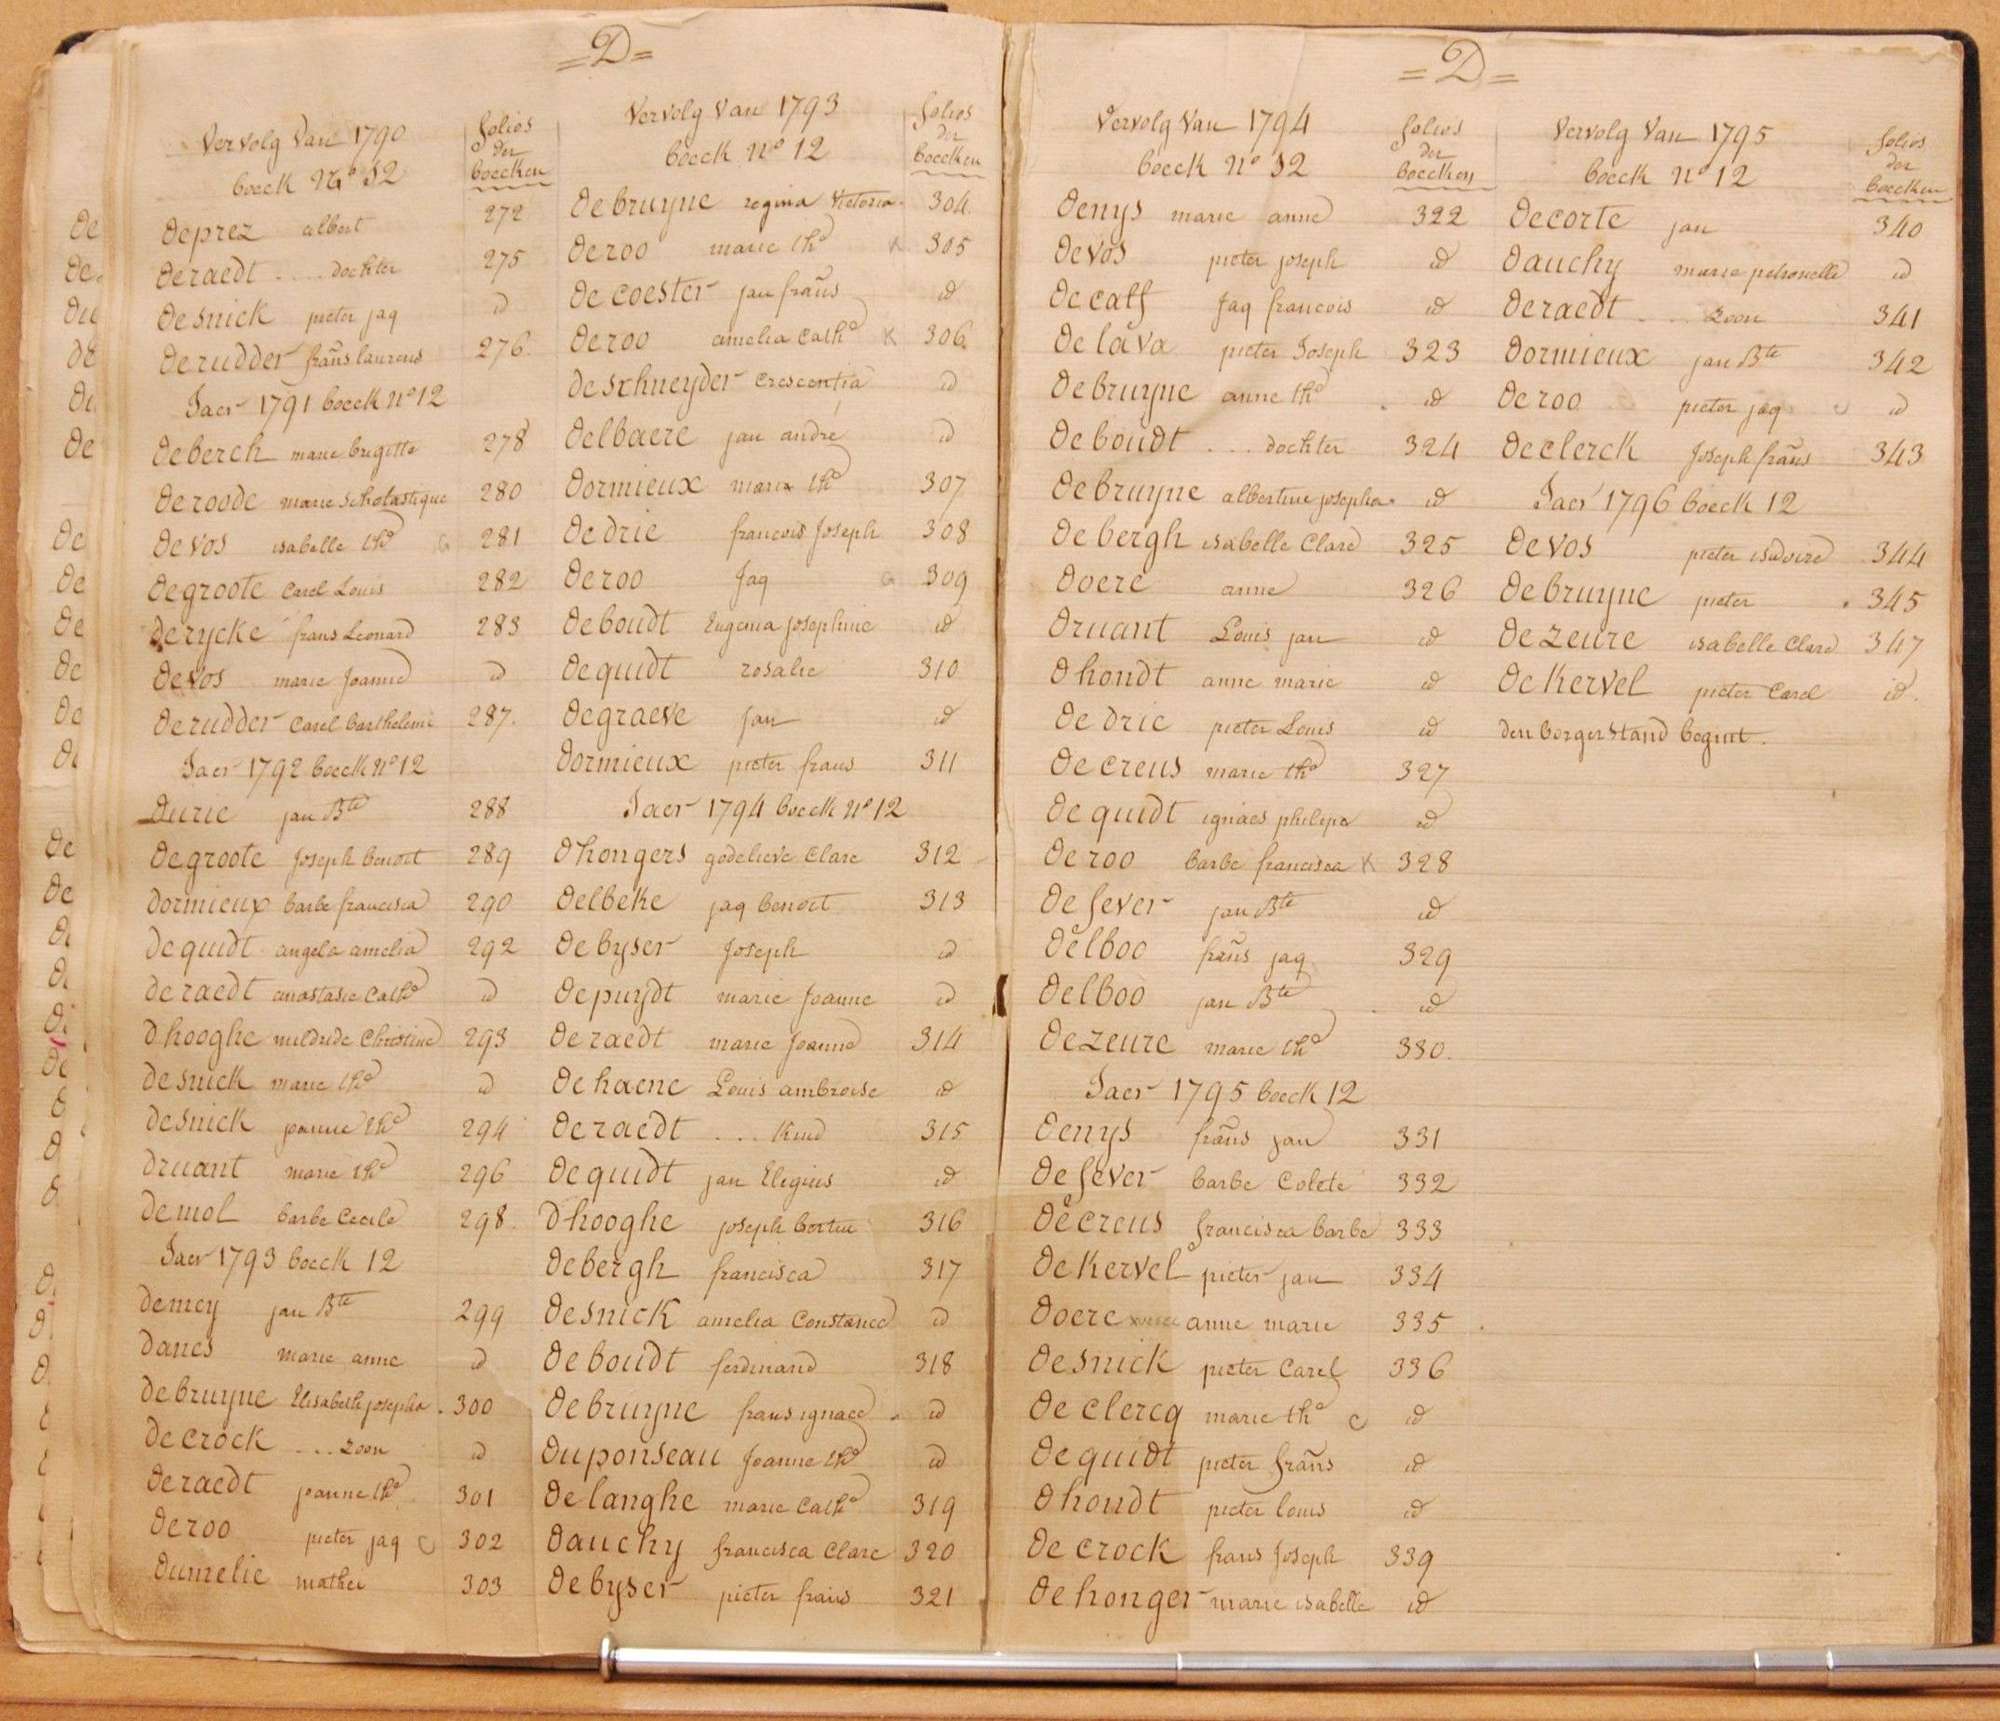 =D=
Vervolg Van 1790
boeck No 12
folios
der
boecken
deprez albert 272
deraedt .... dochter 275
desnick pieter jaq id
derudder frans laurens 276
Jaer 1791 boeck No 12
deberch marie brigitte 278
deroode marie scholastique 280
devos isabelle thd G 281
degroote Carel Louis 282
derycke frans Leonard 283
devos marie Joanne id
derudder Carel barthelemi 287.
Jaer 1792 boeck No 12
durie jan Bte 288
degroote Joseph benoit 289
dormieux barbe francisca 290
dequidt angela amelia 292
deraedt anastasie Cathe id
dhooghe meldride Christine 293
desnick marie the id
desnick joanne the 294
druant marie the 296
demol barbe Cecile 298.
Jaer 1793 boeck 12
demey jan Bte 299
danes marie anne id
debruyne Elisabeth josepha . 300
decrock ... zoon id
deraedt joanne the 301
deroo pieter jaq C 302
dumelie mathei 303
Vervolg Van 1793
boeck No 12
folios
der
boecken
debruyne regina Victoria. 304.
deroo marie the K 305
decoester jan frans id
deroo amelia Cathe K 306
deschneyder Crescentia id
delbaere jan andré id
dormieux maria the 307
dedrie francois Joseph 308
deroo Jaq G 309
deboudt Eugenia Josephine id
dequidt rosalie 310
degraeve Jan id
dormieux pieter frans 311
Jaer 1794 boeck No 12
dhongers godelieve Clare 312
delbeke jaq benoit 313
debyser Joseph id
depuydt marie Joanne id
deraedt marie Joanne 314
dehaene Louis ambroise id
deraedt ... Kind 315
dequidt jan Eligius id
dhooghe joseph bortin 316
debergh francisca 317
desnick amelia Constance id
deboudt ferdinand 318
debruyne frans ignace . id
duponseau Joanne the id
delanghe marie Cathe 319
dauchy francisca Clare 320
debyser pieter frans 321
=D=
Vervolg Van 1794
boeck No 12
folios
der
boecken
denys marie anne 322
devos pieter joseph id
decalf Jaq francois id
delava pieter Joseph 323
debruyne anne the . id
deboudt ... dochter 324
debruyne albertine josepha. id
debergh isabelle Clare 325
doere anne 326
druant Louis jan id
dhondt anne marie id
dedrie pieter Louis id
decreus marie the 327
dequidt ignaes philipe id
deroo barbe francisca K 328
defever jan Bte id
delboo frans jaq 329
delboo jan Bte . id
dezeure marie the 330.
Jaer 1795 boeck 12
denys frans jan 331
defever barbe Colete 332
decreus francisca barbe 333
dekervel pieter jan 334
doere anne marie 335
desnick pieter Carel 336
declercq marie the C id
dequidt pieter frans id
dhondt pieter louis id
decrock frans Joseph 339
dehonger marie isabelle id
Vervolg Van 1795
boeck No 12
folios
der
boecken
decorte jan 340
dauchy marie petronelle id
deraedt .... zoon 341
dormieux jan Bte 342
deroo pieter jaq C id
declerck Joseph frans 343
Jaer 1796 boeck 12
devos pieter isidoire 344
debruyne pieter . 345
dezeure isabelle Clare 347
dekervel pieter Carel id.
den borgerstand begint.